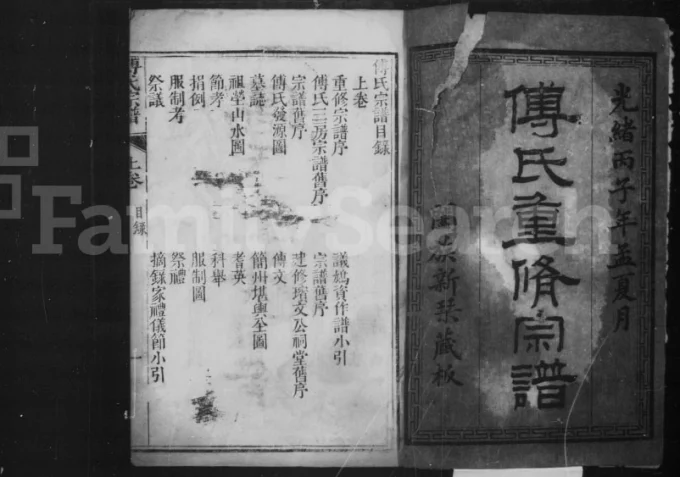 光緒丙子年孟夏月
傅氏重修宗譜
闔族新栞藏板
傅氏宗譜目錄
上卷
重修宗譜序
議捐資作譜小引
傅氏三房宗譜舊序
宗譜舊序
宗譜舊序
建修瓊文公祠堂舊序
傅氏發源圖
傳文
墓誌
簡州堪輿全圖
祖塋山水圖
耆英
節孝
科舉
捐例
服制圖
服制考
祭禮
祭議
摘錄家禮儀節小引
傅氏宗譜
上卷
目錄
一
FamilySearch